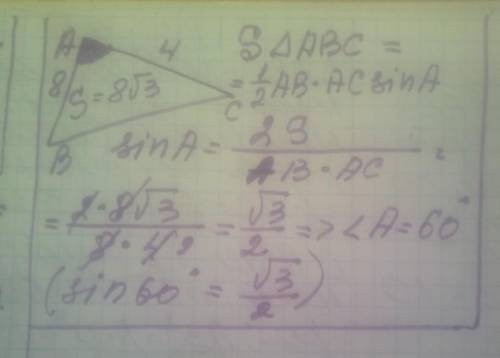 A 4 S△ABC =
8 S=8√3 C = 1/2 AB·AC sinA
B sinA = 2S / AB·AC =
= 2·8√3 / 8·4 2 = √3/2 => <A=60°
(sin60° = √3/2)